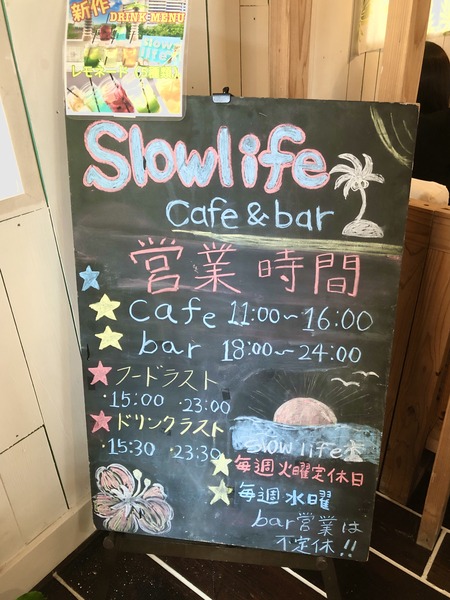 新作
DRINK MENU
slow
life
Slowlife
Cafe & bar
営業時間
Cafe 11:00～16:00
bar 18:00～24:00
フードラスト
・15:00 23:00
ドリンクラスト
・15:30 23:30
slow life
毎週火曜定休日
毎週水曜
bar営業は
不定休!!